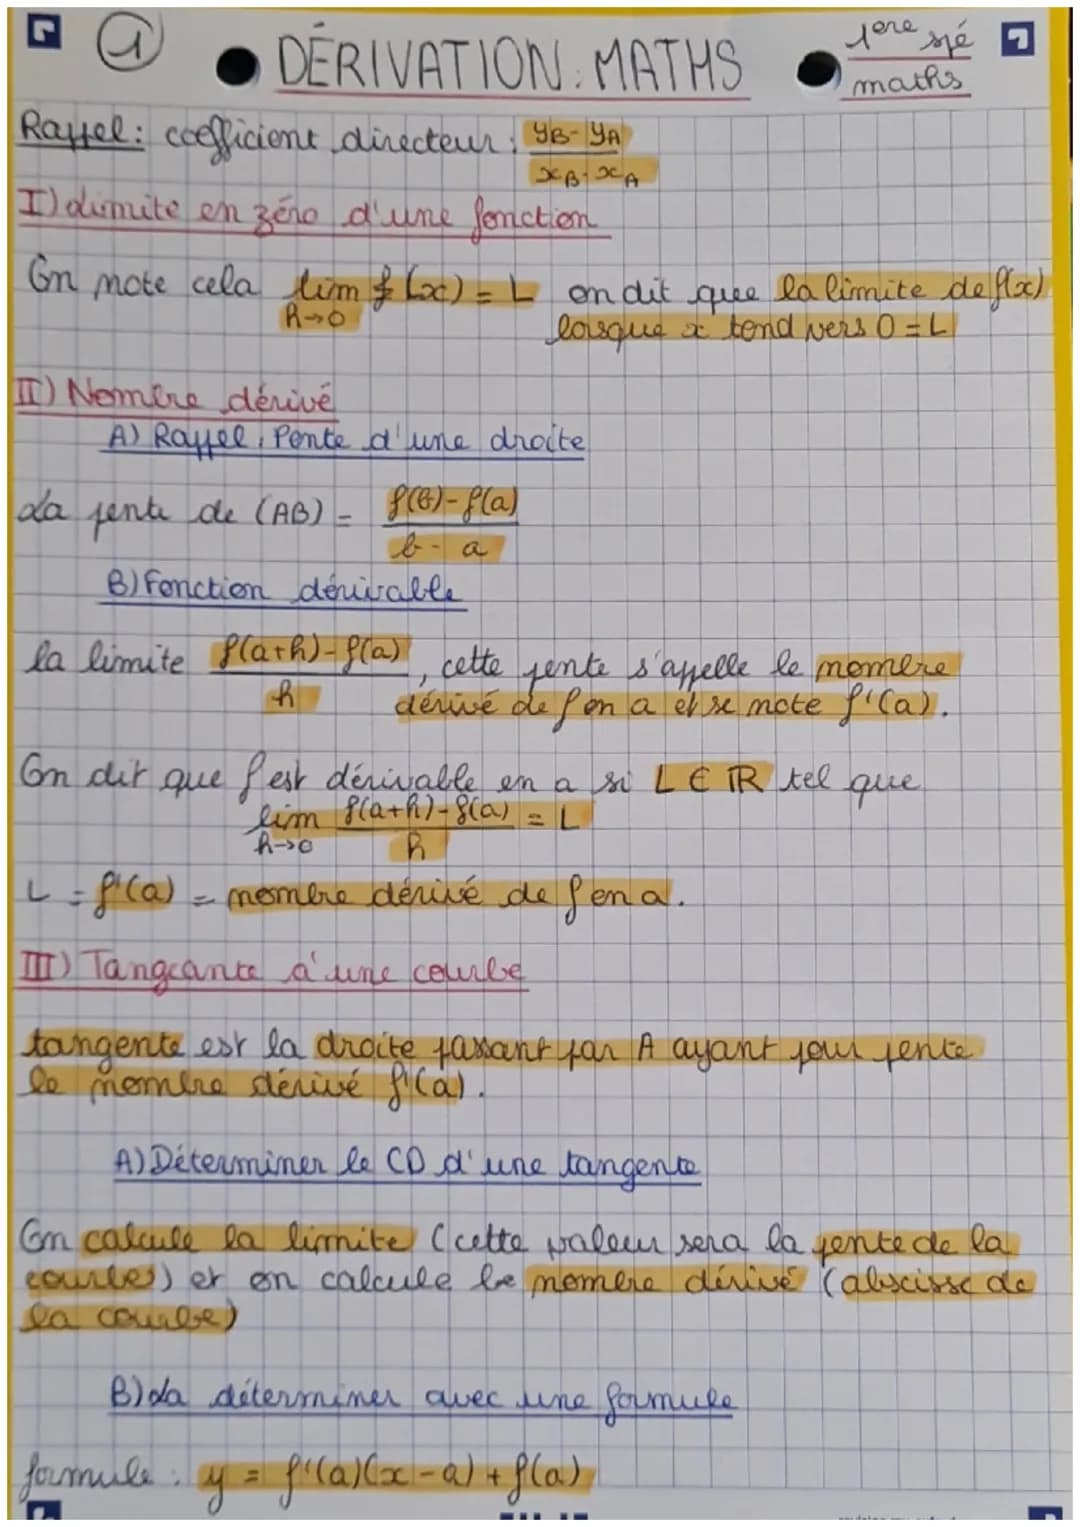 ① • DÉRIVATION : MATHS • 1ere spé maths
Rappel : coefficient directeur : yB - yA / xB - xA
I) Limite en zéro d'une fonction
On note cela lim f(x) = L on dit que la limite de f(x)
h→0 lorsque x tend vers 0 = L
II) Nombre dérivé
A) Rappel : Pente d'une droite
La pente de (AB) = f(b) - f(a) / b - a
B) Fonction dérivable
la limite f(a+h) - f(a) / h , cette pente s'appelle le nombre
dérivé de f en a et se note f'(a).
On dit que f est dérivable en a si L ∈ ℝ tel que
lim f(a+h) - f(a) / h = L
h→0
L = f'(a) = nombre dérivé de f en a.
III) Tangeante à une courbe
tangente est la droite passant par A ayant pour pente
le nombre dérivé f'(a).
A) Déterminer le CD d'une tangente
On calcule la limite (cette valeur sera la pente de la
courbe) et on calcule le nombre dérivé (abscisse de
la courbe)
B) La déterminer avec une formule
formule : y = f'(a)(x - a) + f(a)